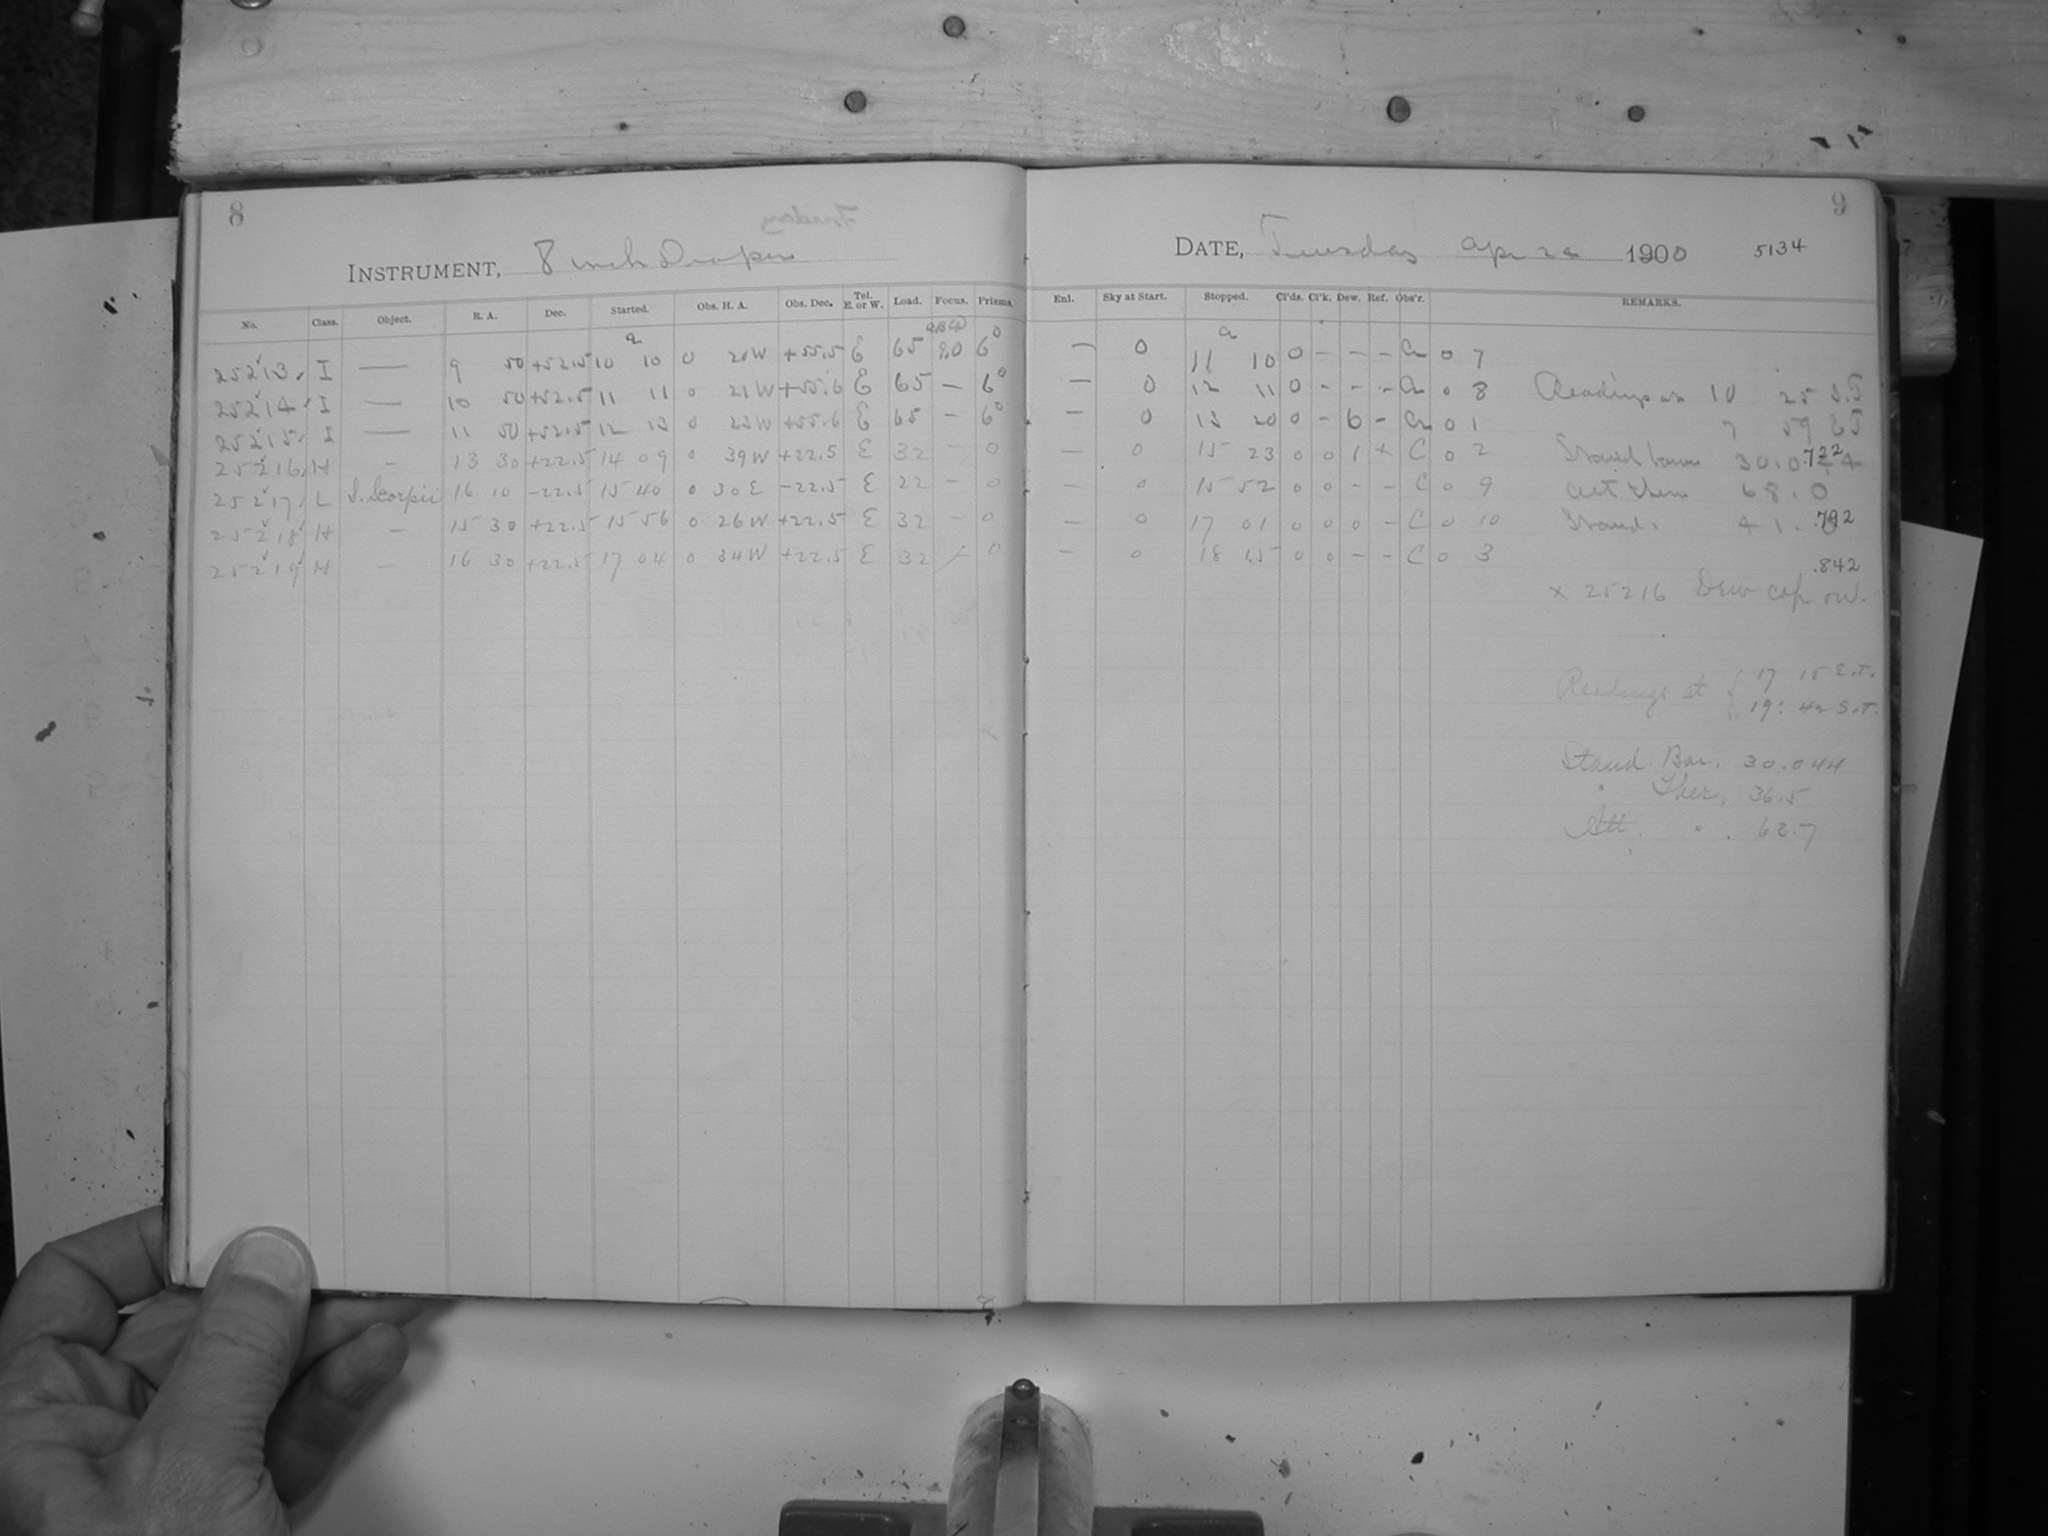 8
INSTRUMENT, 8 inch Draper
No. Class. Object. R. A. Dec. Started. Obs. H. A. Obs. Dec. Tel. E. or W. Load. Focus. Prisms.
25213 I — 9 50 +52.5 10 10 0 20W +55.5 E 65 9.0 6°
25214 I — 10 50 +52.5 11 11 0 21W +55.6 E 65 — 6°
25215 I — 11 50 +52.5 12 13 0 23W +55.6 E 65 — 6°
25216 H — 13 30 +22.5 14 09 0 39W +22.5 E 32 — 0
25217 L S. Scorpii 16 10 -22.5 15 40 0 30E -22.5 E 22 — 0
25218 H — 15 30 +22.5 15 56 0 26W +22.5 E 32 — 0
25219 H — 16 30 +22.5 17 04 0 34W +22.5 E 32 — 0
9
DATE, Tuesday Apr 24 1900 5134
Enl. Sky at Start. Stopped. Cl'ds. Cl'k. Dew. Ref. Obs'r. REMARKS.
— 0 11 10 0 - - - 0 7
— 0 12 11 0 - - - 0 8 Readings at 10 25 S.T
— 0 13 20 0 - 0 - 0 1 7 59 ET
— 0 15 23 0 0 1 + C 0 2 Stand barom 30.044 .722
— 0 15 52 0 0 - - C 0 9 att ther 68.0
— 0 17 01 0 0 0 - C 0 10 Stand. 41.0 .792
— 0 18 15 0 0 - - C 0 3
.842
× 25216 Dew cap on.
Readings at { 17 15 E.T.
19: 42 S.T.
Stand. Bar. 30.044
" Ther. 36.5
Att. " . 68.7